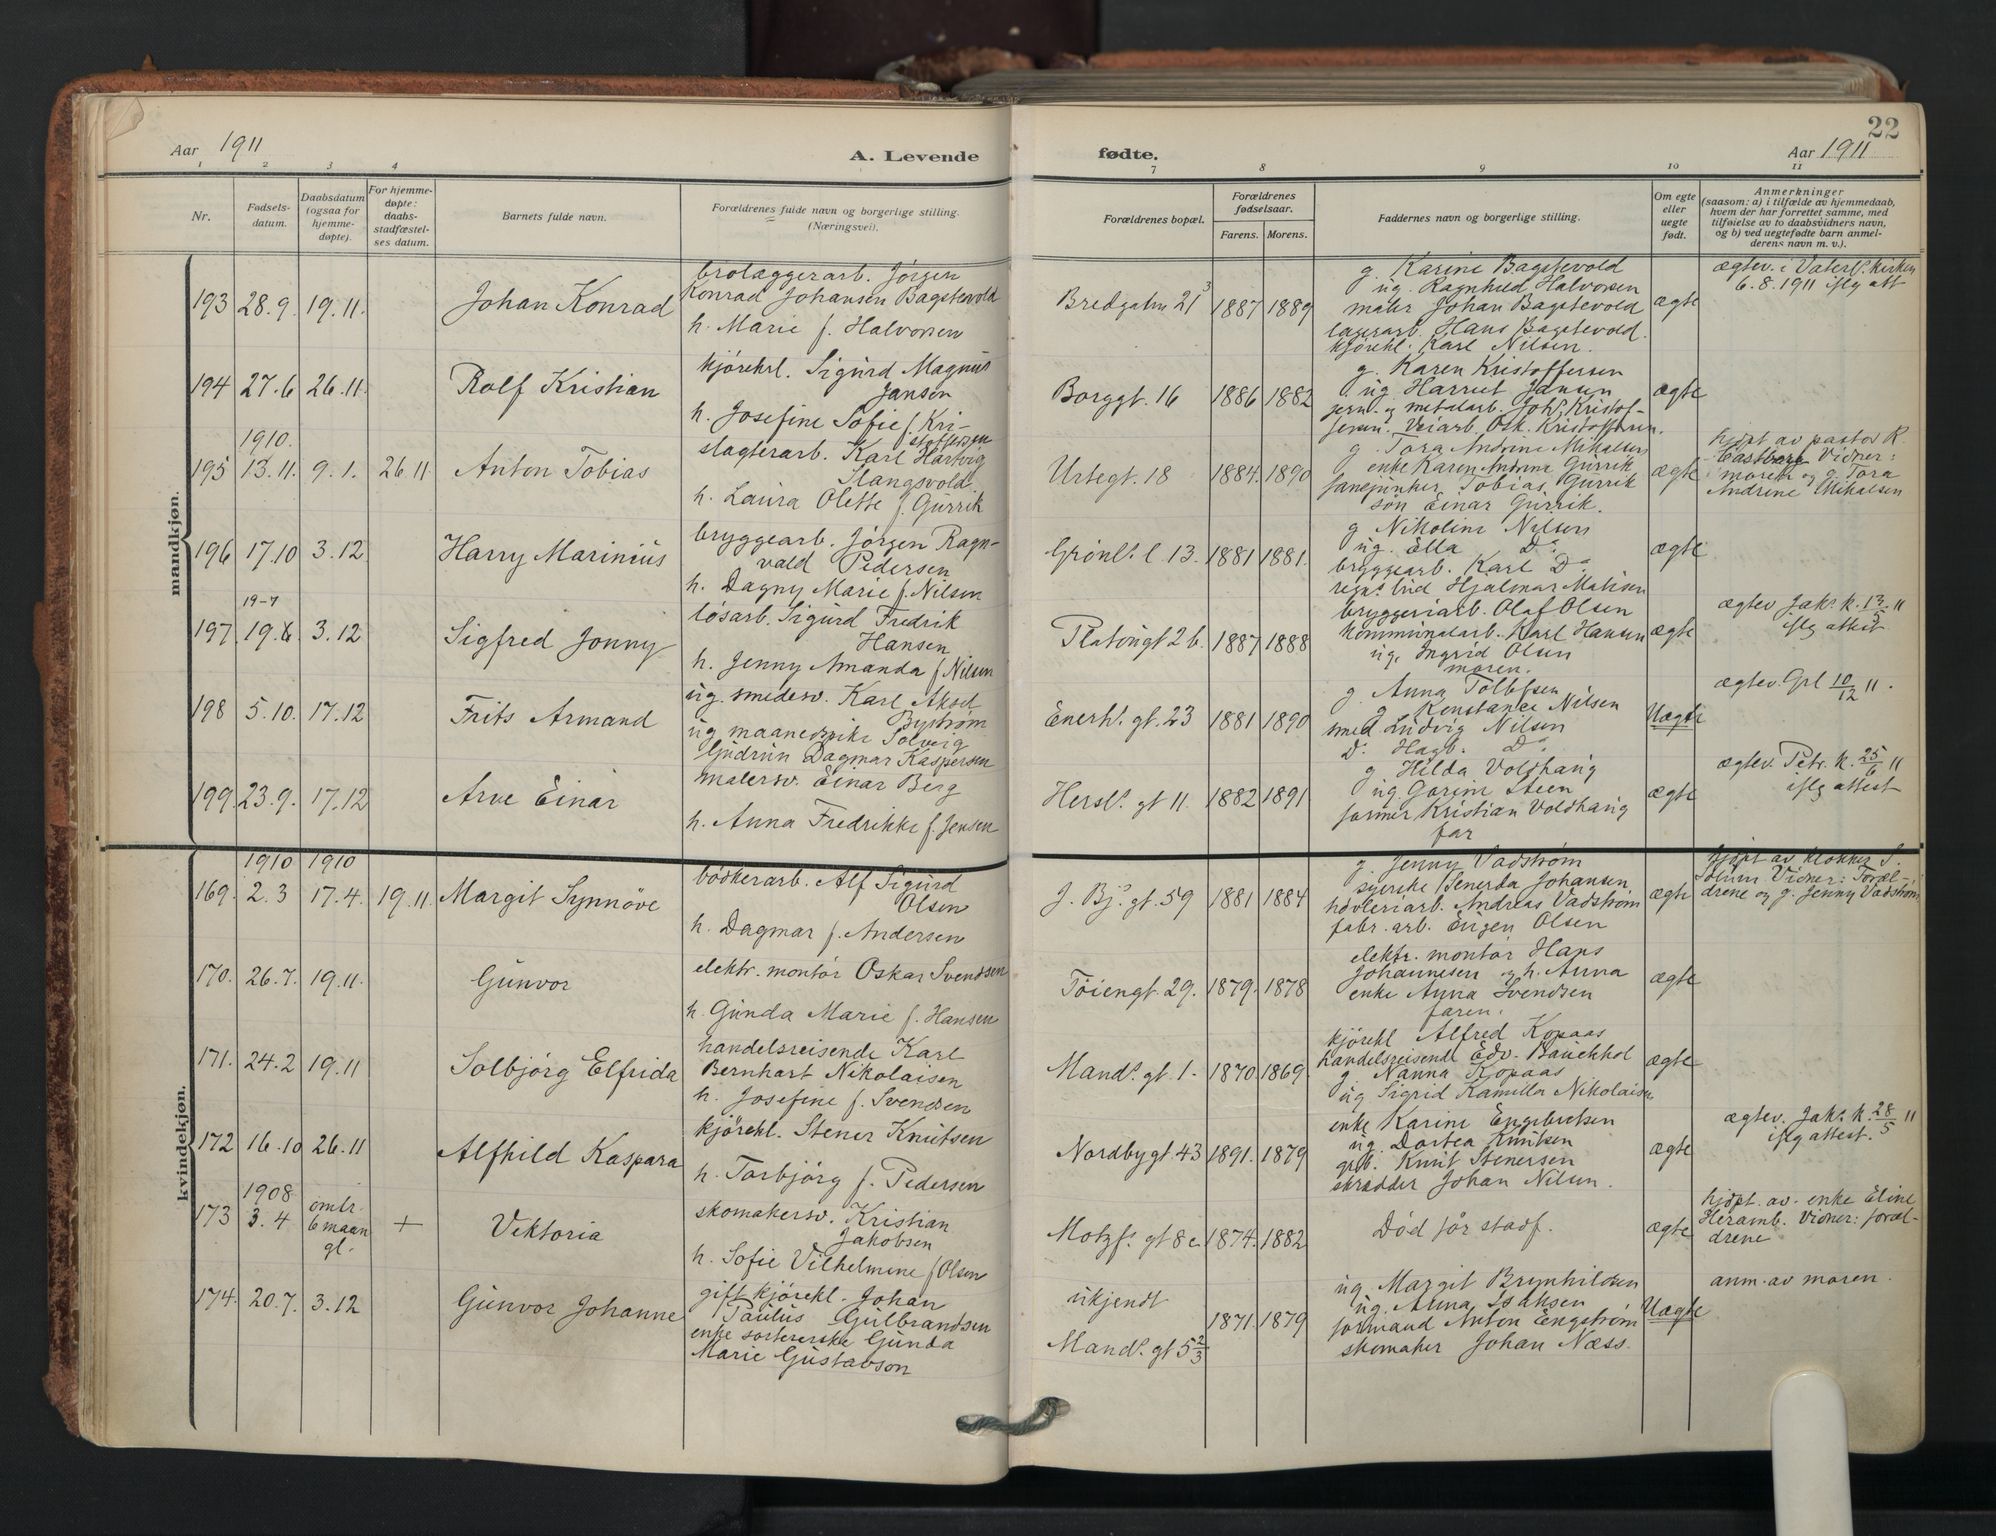 22
Aar 1911
A. Levende fødte.
Aar 1911
1 2 3 4 7 8 9 10 11
Nr.
Fødsels-
datum.
Daabsdatum
(ogsaa for
hjemme-
døpte).
For hjemme-
døpte:
daabs-
stadfæstel-
ses datum.
Barnets fulde navn.
Forældrenes fulde navn og borgerlige stilling.
(Næringsvei).
Forældrenes bopæl.
Forældrenes
fødselsaar.
Farens. Morens.
Faddernes navn og borgerlige stilling.
Om egte
eller
uegte
født.
Anmerkninger
(saasom: a) i tilfælde av hjemmedaab,
hvem der har forrettet samme, med
tilføielse av to daabsvidners navn,
og b) ved uegtefødte barn anmel-
derens navn m. v.).
mandkjøn.
193 28.9. 19.11. Johan Konrad
brolæggerarb. Jørgen
Konrad Johansen Bagstevold
h. Marie f. Halvorsen
Bredgaten 21³ 1887 1889
g. Karine Bagstevold
ug. Ragnhild Halvorsen
maler Johan Bagstevold
lagerarb. Hans Bagstevold.
kjørekl. Karl Nilsen.
ægte
ægtev. i Vaterl. kirken
6.8.1911 iflg att
194 27.6 26.11. Rolf Kristian
kjørekrl. Sigurd Magnus
Jansen
h. Josefine Sofie f. Kri-
stoffersen
Borggt. 16 1886 1882
g. Karen Kristoffersen
ug. Harriet Jansen
jern- og metalarb. Joh. Kristof-
fersen. Veiarb. Osk. Kristoffersen.
ægte
1910.
195 13.11. 9.1. 26 11. Anton Tobias
slagterarb. Karl Hartvig
Slangsvold
h. Laura Olette f. Gurrik
Urtegt. 18 1884. 1890
g. Tora Andrine Mikalsen
enke Karen Andrine Gurrik
fanejunker Tobias Gurrik
søn Einar Gurrik.
ægte
hjdpt av pastor R.
Castberg Vidner:
moren og g. Tora
Andrene Mikalsen
196 17.10 3.12. Harry Marinius
bryggearb. Jørgen Ragn-
vald Pedersen
h. Dagny Marie f. Nilsen
Grønl. l. 13. 1881 1881.
g. Nikoline Nilsen
ug. Ella Do
bryggearb. Karl Do
regn. bud Hjalmar Matisen
ægte
19-7
197 19.6 3.12 Sigfred Jonny
løsarb. Sigurd Fredrik
Hansen
h. Jenny Amanda f. Nilsen
Platougt 2 b. 1887 1888
bryggeriarb. Olaf Olsen
kommunalarb. Karl Hansen
ug. Ingrid Olsen
moren.
ægte
ægtev Jak. k. 13/5 11
iflg attest.
198 5.10. 17.12 Frits Armand
ug. smedesv. Karl Aksel
Byström
ug maanedspike Solveig
Gudrun Dagmar Kaspersen
Enerh. gt. 23 1881 1890
g. Anna Tollefsen
g. Konstance Nilsen
smed Ludvig Nilsen
Do Hagb. Do
Uægte
ægtev. Grl 10/12 11.
199. 23.9. 17.12 Arve Einar
malersv. Einar Berg
h. Anna Fredrikke f. Jensen
Hersl. gt 11. 1882 1891
g Hilda Voldhaug
ug Gorine Steen
former Kristian Voldhaug
far
ægte
ægtev. Petr. k. 25/6 11
iflg attest
kvindekjøn.
1910 1910
169. 2.3 17.4. 19.11. Margit Synnöve
bødkerarb. Alf Sigurd
Olsen
h. Dagmar f. Andersen
J. Bj. gt. 59 1881 1884
g. Jenny Vadstrøm
syerske Senerda Johansen
høvleriarb. Andreas Vadstrøm
fabr. arb. Eugen Olsen
ægte
hjdpt av klokker S.
Solum Vidner: Foræl-
drene og g. Jenny Vadstrøm
170. 26.7. 19.11. Gunvor
elektr. montør Oskar Svendsen
h. Gunda Marie f. Hansen
Tøiengt. 29. 1879. 1878
elektr. montør Hans
Johannesen og h. Anna
enke Anna Svendsen
faren.
ægte
171. 24.2 19.11 Solbjørg Elfrida
handelsreisende Karl
Bernhart Nikolaisen
h. Josefine f. Svendsen
Mand. gt. 1- 1870. 1869.
kjørekl Alfred Kopaas
handelsreisende Edv. Bauckhol
g Nanna Kopaas
ug Sigrid Kamilla Nikolaisen
ægte
172 16.10 26.11 Alfhild Kaspara
kjørekl. Stener Knutsen
h. Torbjørg f. Pedersen
Nordbygt 43 1891. 1879
enke Karine Engebretsen
ug. Dortea Knutsen
grb. Knut Stenersen
skrædder Johan Nilsen.
ægte
ægtev. Jak. k. 28/5 11
iflg attest.
1908
173 3.4 omtr.
6 maan
gl. + Viktoria
skomakersv. Kristian
Jakobsen
h. Sofie Vilhelmine f. Olsen
Motzf. gt 8 c. 1874. 1882
Død før stadf.
ægte
hjdpt. av. enke Eline
Heramb. Vidner: foræl-
drene
174. 20.7. 3.12 Gunvor Johanne
gift kjørekl. Johan
Paulus Gulbrandsen
enke sortererske Gunda
Marie Gustavson
ukjendt
Mand. gt 5 2/3 1871. 1879
ug. Margit Brynhildsen
ug. Anna Isaksen
formand Anton Engstrøm
skomaker Johan Næss.
Uægte
anm. av moren.